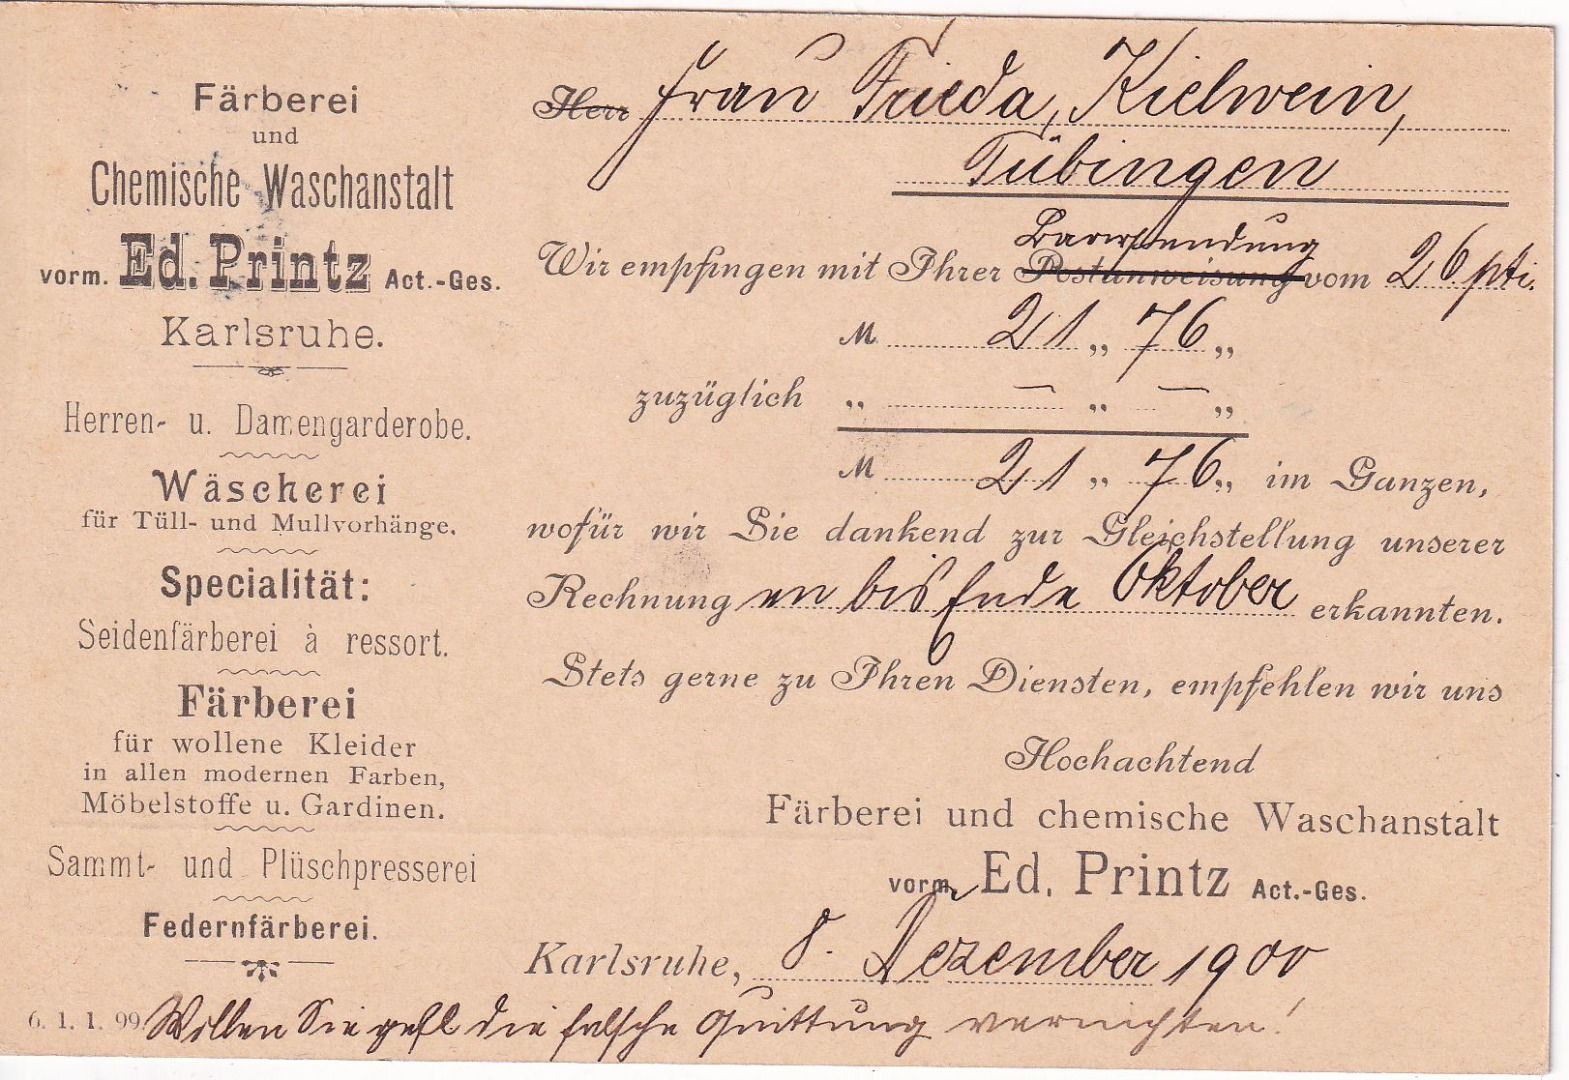 Färberei
und
Chemische Waschanstalt
vorm. Ed. Printz Act.-Ges.
Karlsruhe.
Herren- u. Damengarderobe.
Wäscherei
für Tüll- und Mullvorhänge.
Specialität:
Seidenfärberei à ressort.
Färberei
für wollene Kleider
in allen modernen Farben,
Möbelstoffe u. Gardinen.
Sammt- und Plüschpresserei
Federnfärberei.
6. 1. 1. 99.
Herr Frau Frieda Kielwein,
Tübingen
Barsendung
Wir empfingen mit Ihrer Postanweisung vom 26. pti.
M 21 „ 76 „
zuzüglich „ — „ — „
M 21 „ 76 „ im Ganzen,
wofür wir Sie dankend zur Gleichstellung unserer
Rechnung bis Ende Oktober erkannten.
Stets gerne zu Ihren Diensten, empfehlen wir uns
Hochachtend
Färberei und chemische Waschanstalt
vorm. Ed. Printz Act.-Ges.
Karlsruhe, 8. Dezember 1900
Wollen Sie gefl die falsche Quittung vernichten!